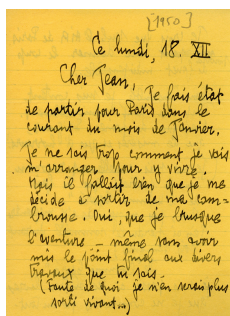 [1950]
Ce lundi, 18. XII
Cher Jean, Je fais état
de partir pour Paris dans le
courant du mois de Janvier.
Je ne sais trop comment je vais
m'arranger pour y vivre.
Mais il fallait bien que je me
décide à sortir de ma cam-
brousse. Oui, que je brusque
l'aventure – même sans avoir
mis le point final aux divers
travaux que tu sais.
(Faute de quoi je n'en serais plus
sorti vivant...)